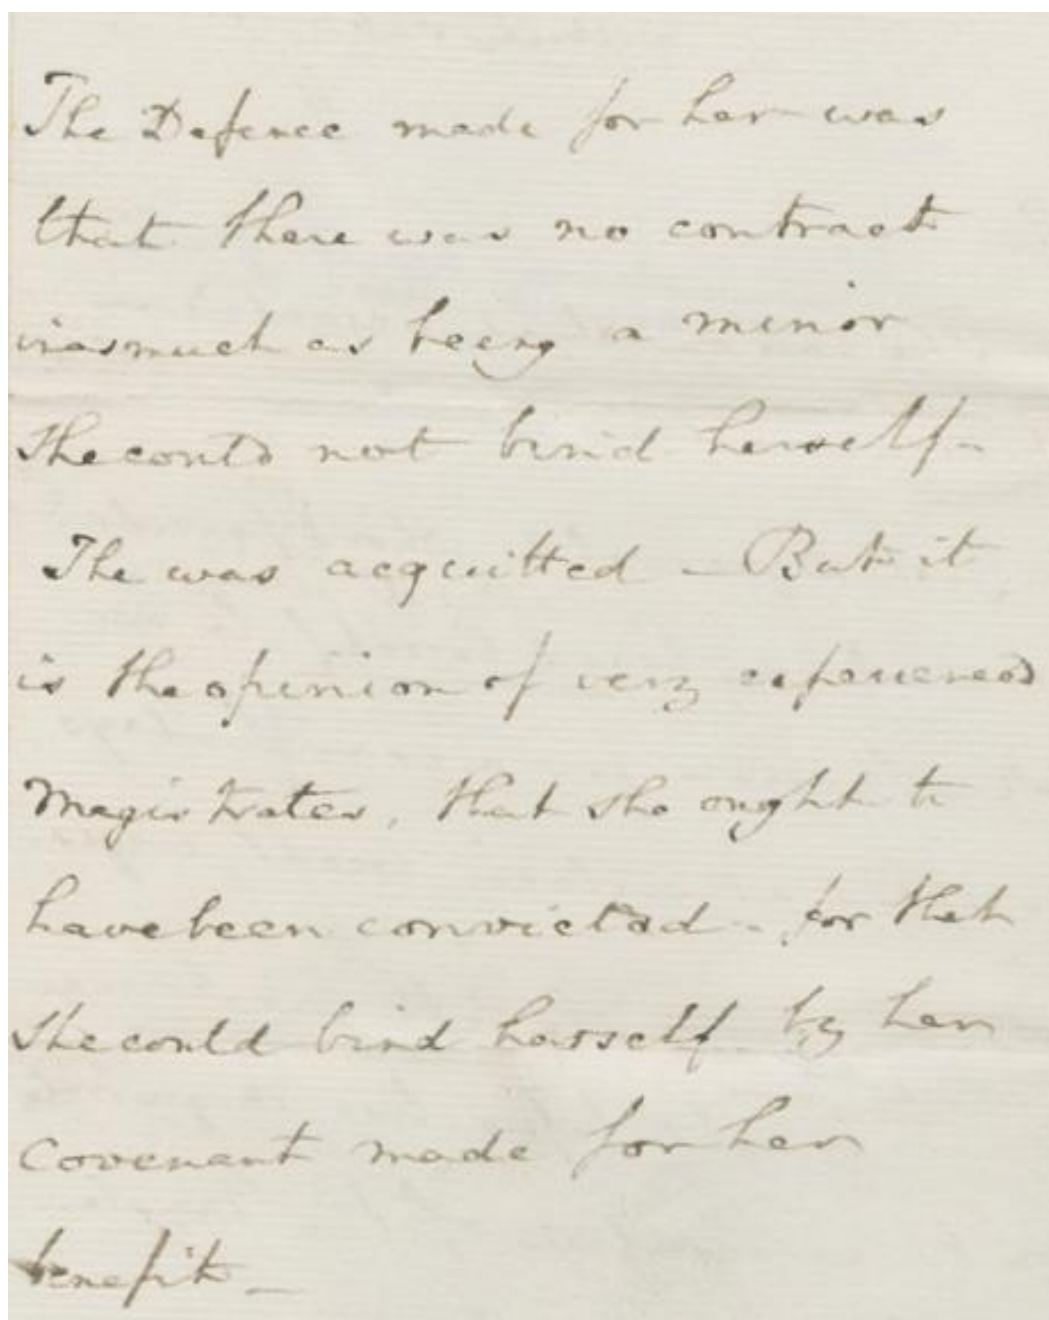 The Defence made for her was
that there was no contract
inasmuch as being a minor
she could not bind herself -
She was acquitted - But it
is the opinion of very experienced
Magistrates, that she ought to
have been convicted - for that
she could bind herself by her
Covenant made for her
benefit -